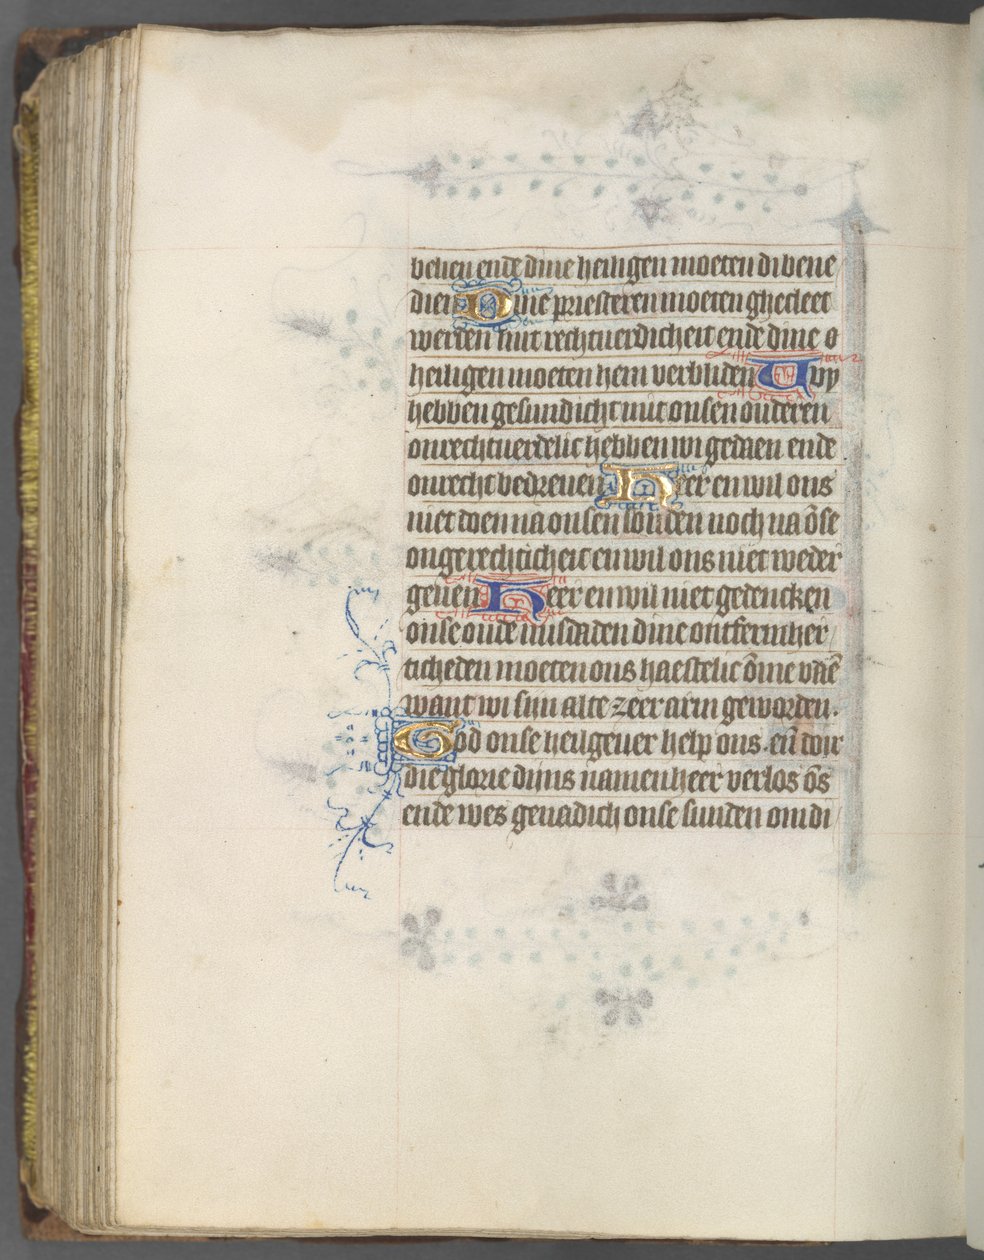 velien ende dine heiligen moeten di bene
dien Dine priesteren moeten ghecleet
werden mit rechtuerdicheit ende dine o
heiligen moeten hem verbliden Wy
hebben gesundicht mit onsen ouderen
onrechtuerdelic hebben wi gedaen ende
onrecht bedreuen Heer en wil ons
niet doen na onsen sonden noch na ōse
ongerechticheit en wil ons niet weder
geuen Heer en wil niet gedencken
onse oude misdaden dine ontfermher
ticheden moeten ons haestelic ōme vaē
want wi sijn alte zeer arm geworden.
God onse heilgeuer help ons. en̄ doir
die glorie dijns namen heer verlos ōs
ende wes genadich onse sunden om di